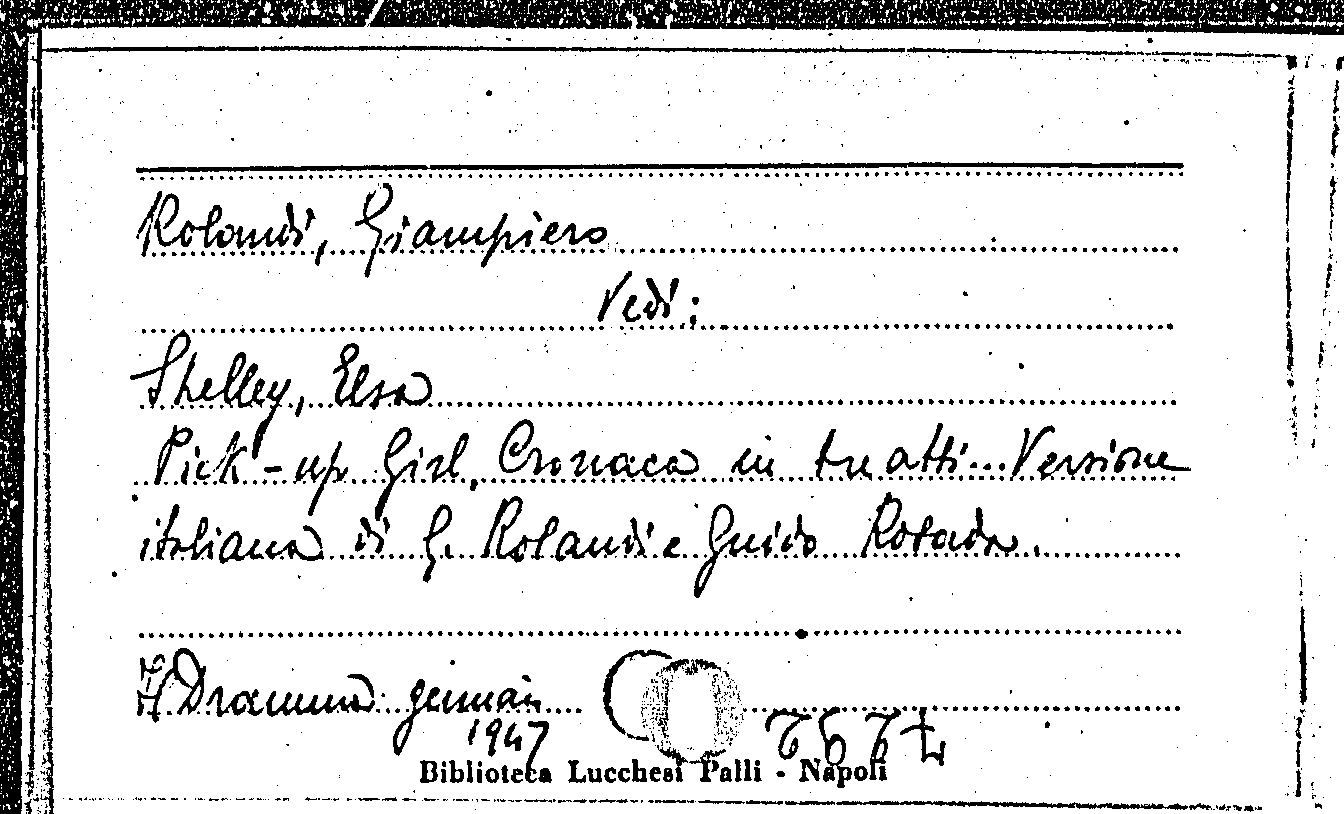 Rolandi, Giampiero
Vedi:
Shelley, Elsa
Pick-up Girl, Cronaca in tre atti... Versione
italiana di G. Rolandi e Guido Rotada.
Il Dramma gennaio
1947
Biblioteca Lucchesi Palli - Napoli